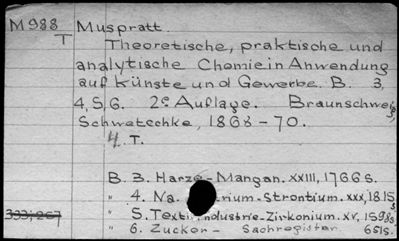 M 988 Muspratt.
T
Theoretische, praktische und
analytische Chemie in Anwendung
auf Künste und Gewerbe. B. 3,
4, 5, 6. 2e Auflage. Braunschweig,
Schwetschke, 1868-70.
4. T.
B. 3. Harze-Mangan. XXIII, 1766 S.
" 4. Na. rium-Strontium. XXX, 1815
S
333; 267 " 5. Textilindustrie-Zirkonium. XV, 1598 S.
" 6. Zucker- Sachregister 651 S.